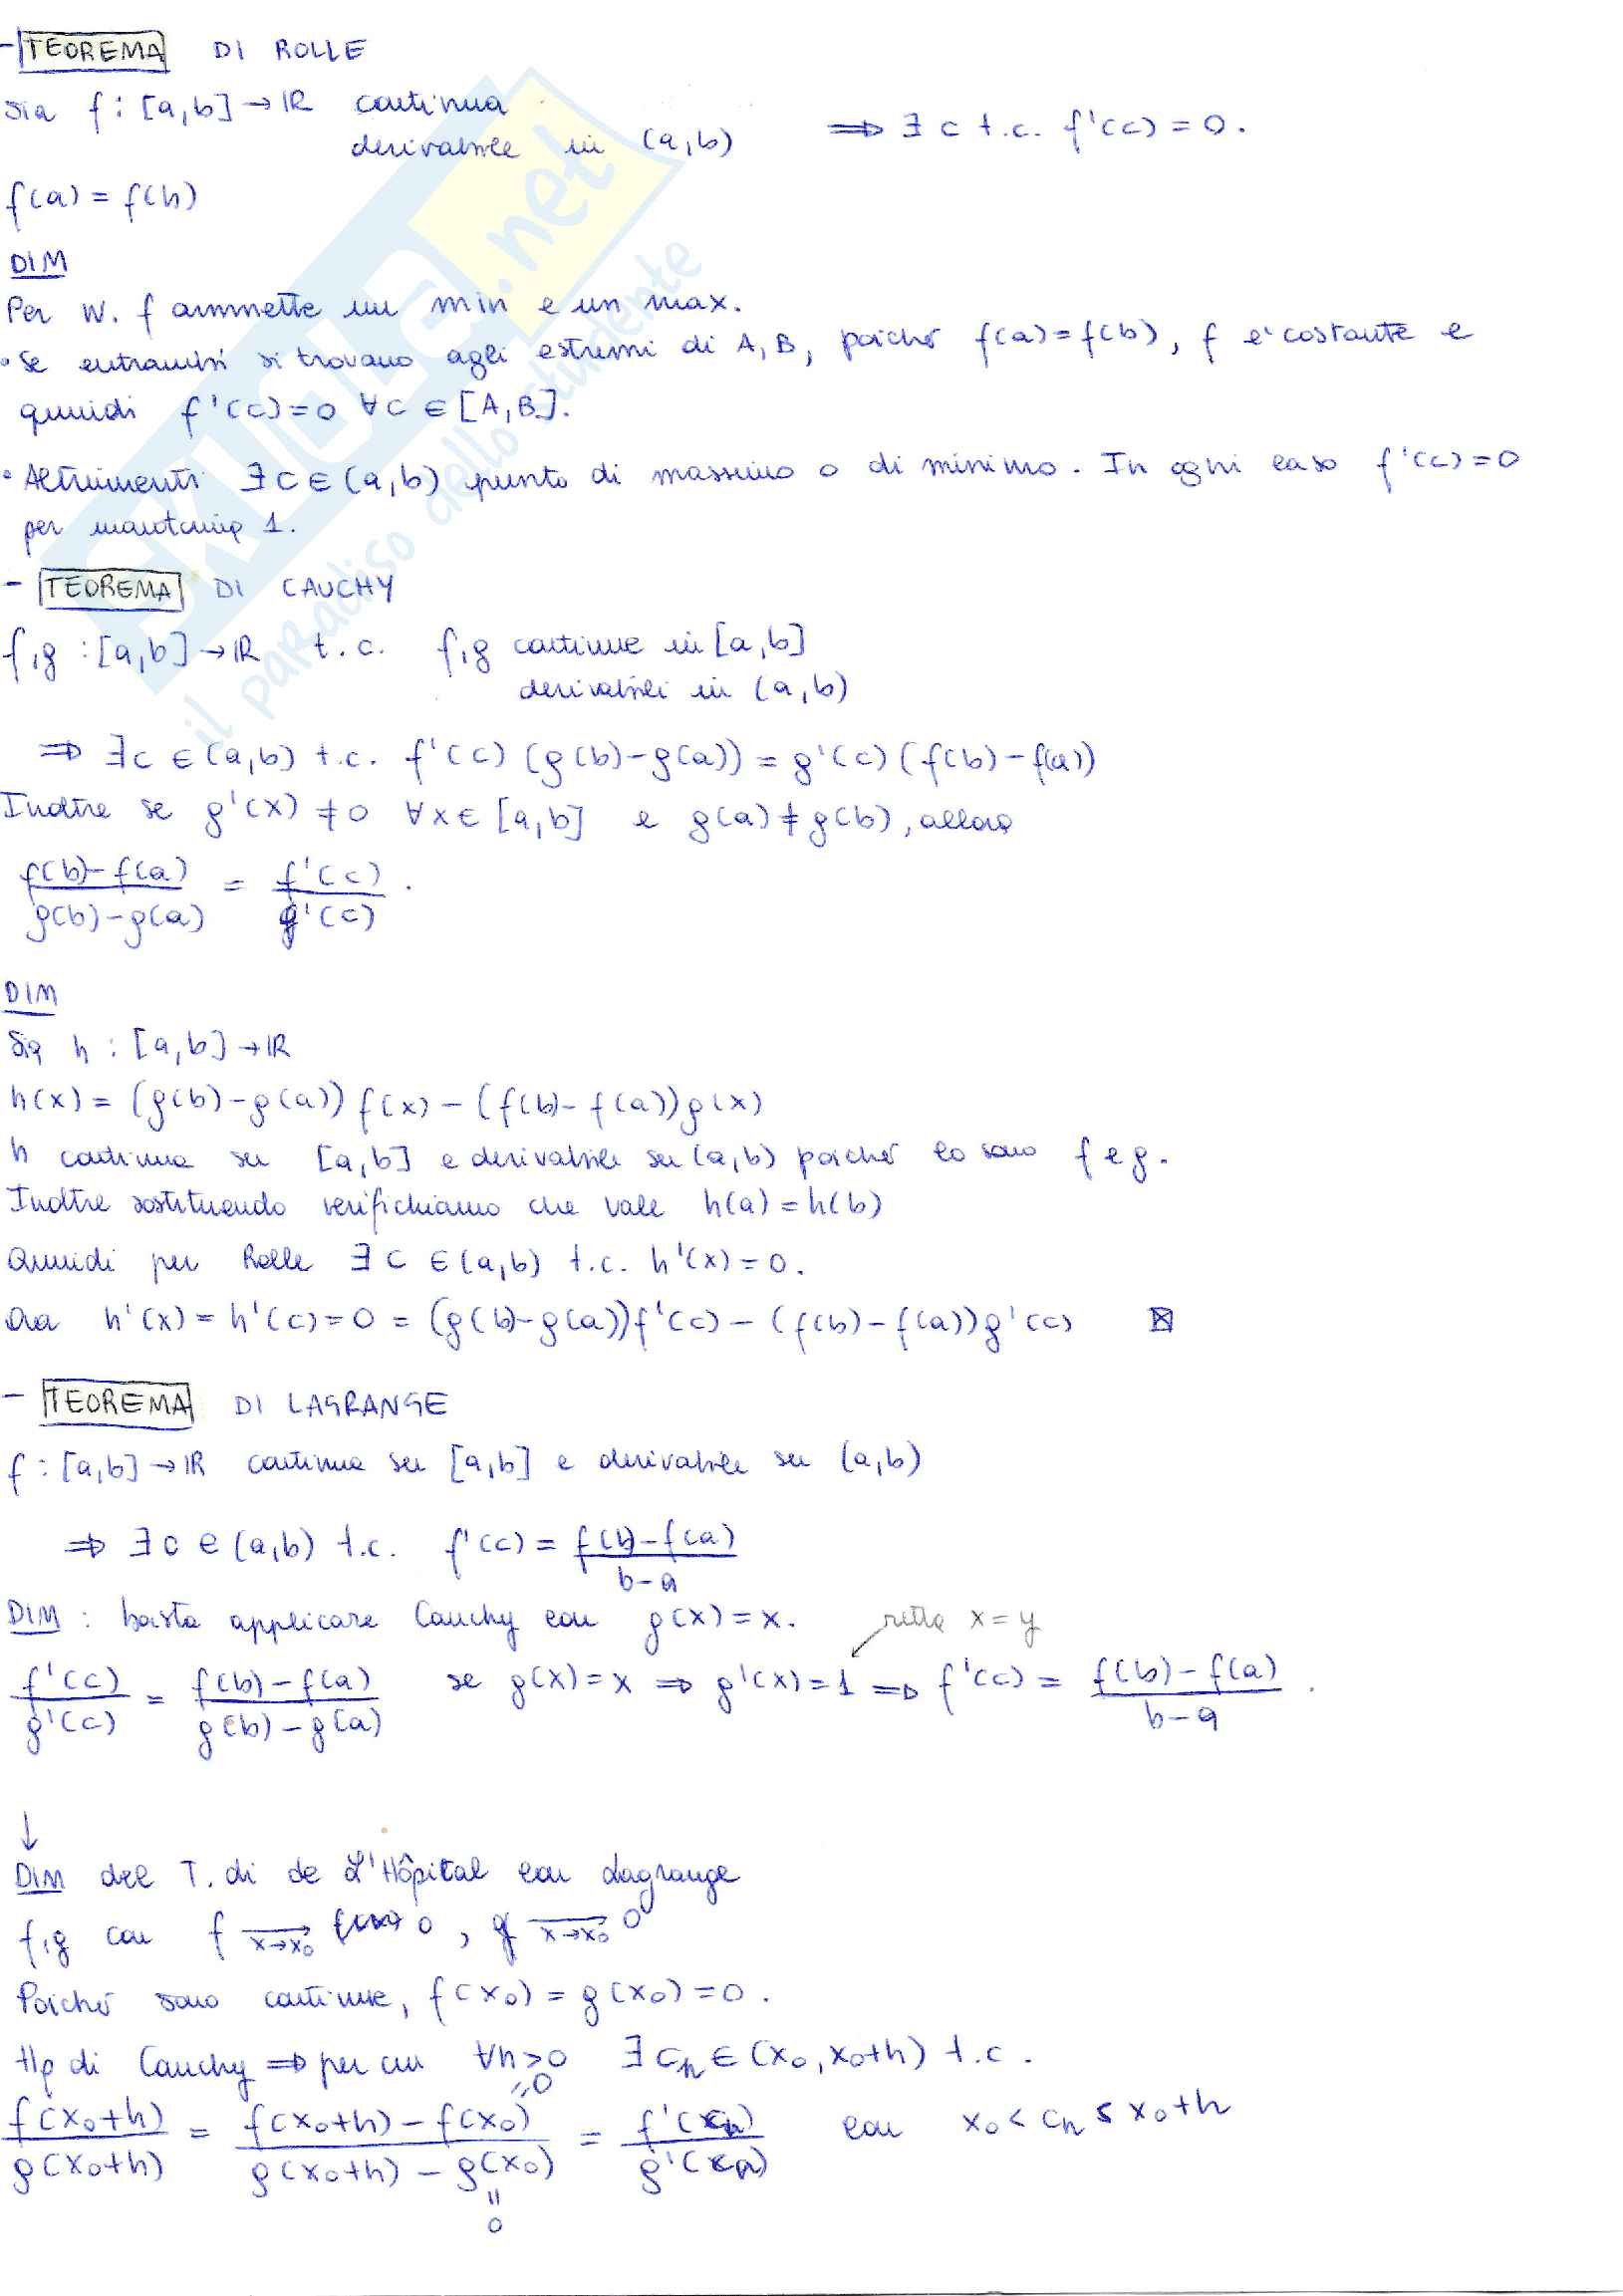 - TEOREMA DI ROLLE
Sia f : [a,b] → ℝ continua
derivabile in (a,b) ⟹ ∃ c t.c. f'(c) = 0.
f(a) = f(b)
DIM
Per W. f ammette un min e un max.
• Se entrambi si trovano agli estremi di A, B, poiché f(a) = f(b), f è costante e
quindi f'(c) = 0 ∀ c ∈ [A, B].
• Altrimenti ∃ c ∈ (a,b) punto di massimo o di minimo. In ogni caso f'(c) = 0
per 1.
- TEOREMA DI CAUCHY
f, g : [a,b] → ℝ t.c. f, g continue in [a,b]
derivabili in (a,b)
⟹ ∃ c ∈ (a,b) t.c. f'(c) (g(b) - g(a)) = g'(c) (f(b) - f(a))
Inoltre se g'(x) ≠ 0 ∀ x ∈ [a,b] e g(a) ≠ g(b), allora
(f(b) - f(a)) / (g(b) - g(a)) = f'(c) / g'(c) .
DIM
Sia h : [a,b] → ℝ
h(x) = (g(b) - g(a)) f(x) - (f(b) - f(a)) g(x)
h continua su [a,b] e derivabile su (a,b) poiché lo sono f e g.
Inoltre sostituendo verifichiamo che vale h(a) = h(b)
Quindi per Rolle ∃ c ∈ (a,b) t.c. h'(x) = 0.
Ora h'(x) = h'(c) = 0 = (g(b) - g(a)) f'(c) - (f(b) - f(a)) g'(c) ⊠
- TEOREMA DI LAGRANGE
f : [a,b] → ℝ continua su [a,b] e derivabile su (a,b)
⟹ ∃ c ∈ (a,b) t.c. f'(c) = (f(b) - f(a)) / (b - a)
DIM : basta applicare Cauchy con g(x) = x. retta x = y
f'(c) / g'(c) = (f(b) - f(a)) / (g(b) - g(a)) se g(x) = x ⟹ g'(x) = 1 ⟹ f'(c) = (f(b) - f(a)) / (b - a) .
↓
DIM del T. di de L'Hôpital con Lagrange
f, g con f → 0 (x → x₀), g → 0 (x → x₀)
Poiché sono continue, f(x₀) = g(x₀) = 0.
Hp di Cauchy ⟹ per cui ∀ h > 0 ∃ cₕ ∈ (x₀, x₀+h) t.c.
f(x₀+h) / g(x₀+h) = (f(x₀+h) - f(x₀)) / (g(x₀+h) - g(x₀)) = f'(cₕ) / g'(cₕ) con x₀ < cₕ < x₀+h
= 0
= 0
SKUOLA.net
il paradiso dello studente